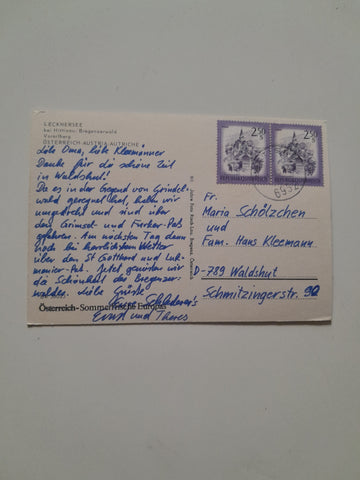 LECKNERSEE
bei Hittisau, Bregenzerwald
Vorarlberg
ÖSTERREICH-AUSTRIA-AUTRICHE
Liebe Oma, liebe Kleemänner
Danke für die schöne Zeit
in Waldshut!
Da es in der Gegend von Grindel-
wald geregnet hat, haben wir
umgedreht und sind über
den Grimsel- und Furka-Paß
gefahren. Am nächsten Tag dann
noch bei herrlichstem Wetter
über den St Gotthard und Luk-
manier-Paß. Jetzt genießen wir
die Schönheit des Bregenzer-
waldes. Liebe Grüße
Eure
Ernst und Theres
Österreich-Sommerfrische Europas
2.50
2.50
REPUBLIK ÖSTERREICH
REPUBLIK ÖSTERREICH
6952
Fr.
Maria Schölzchen
und
Fam. Haus Kleemann
D-789 Waldshut
Schmitzingerstr. 90